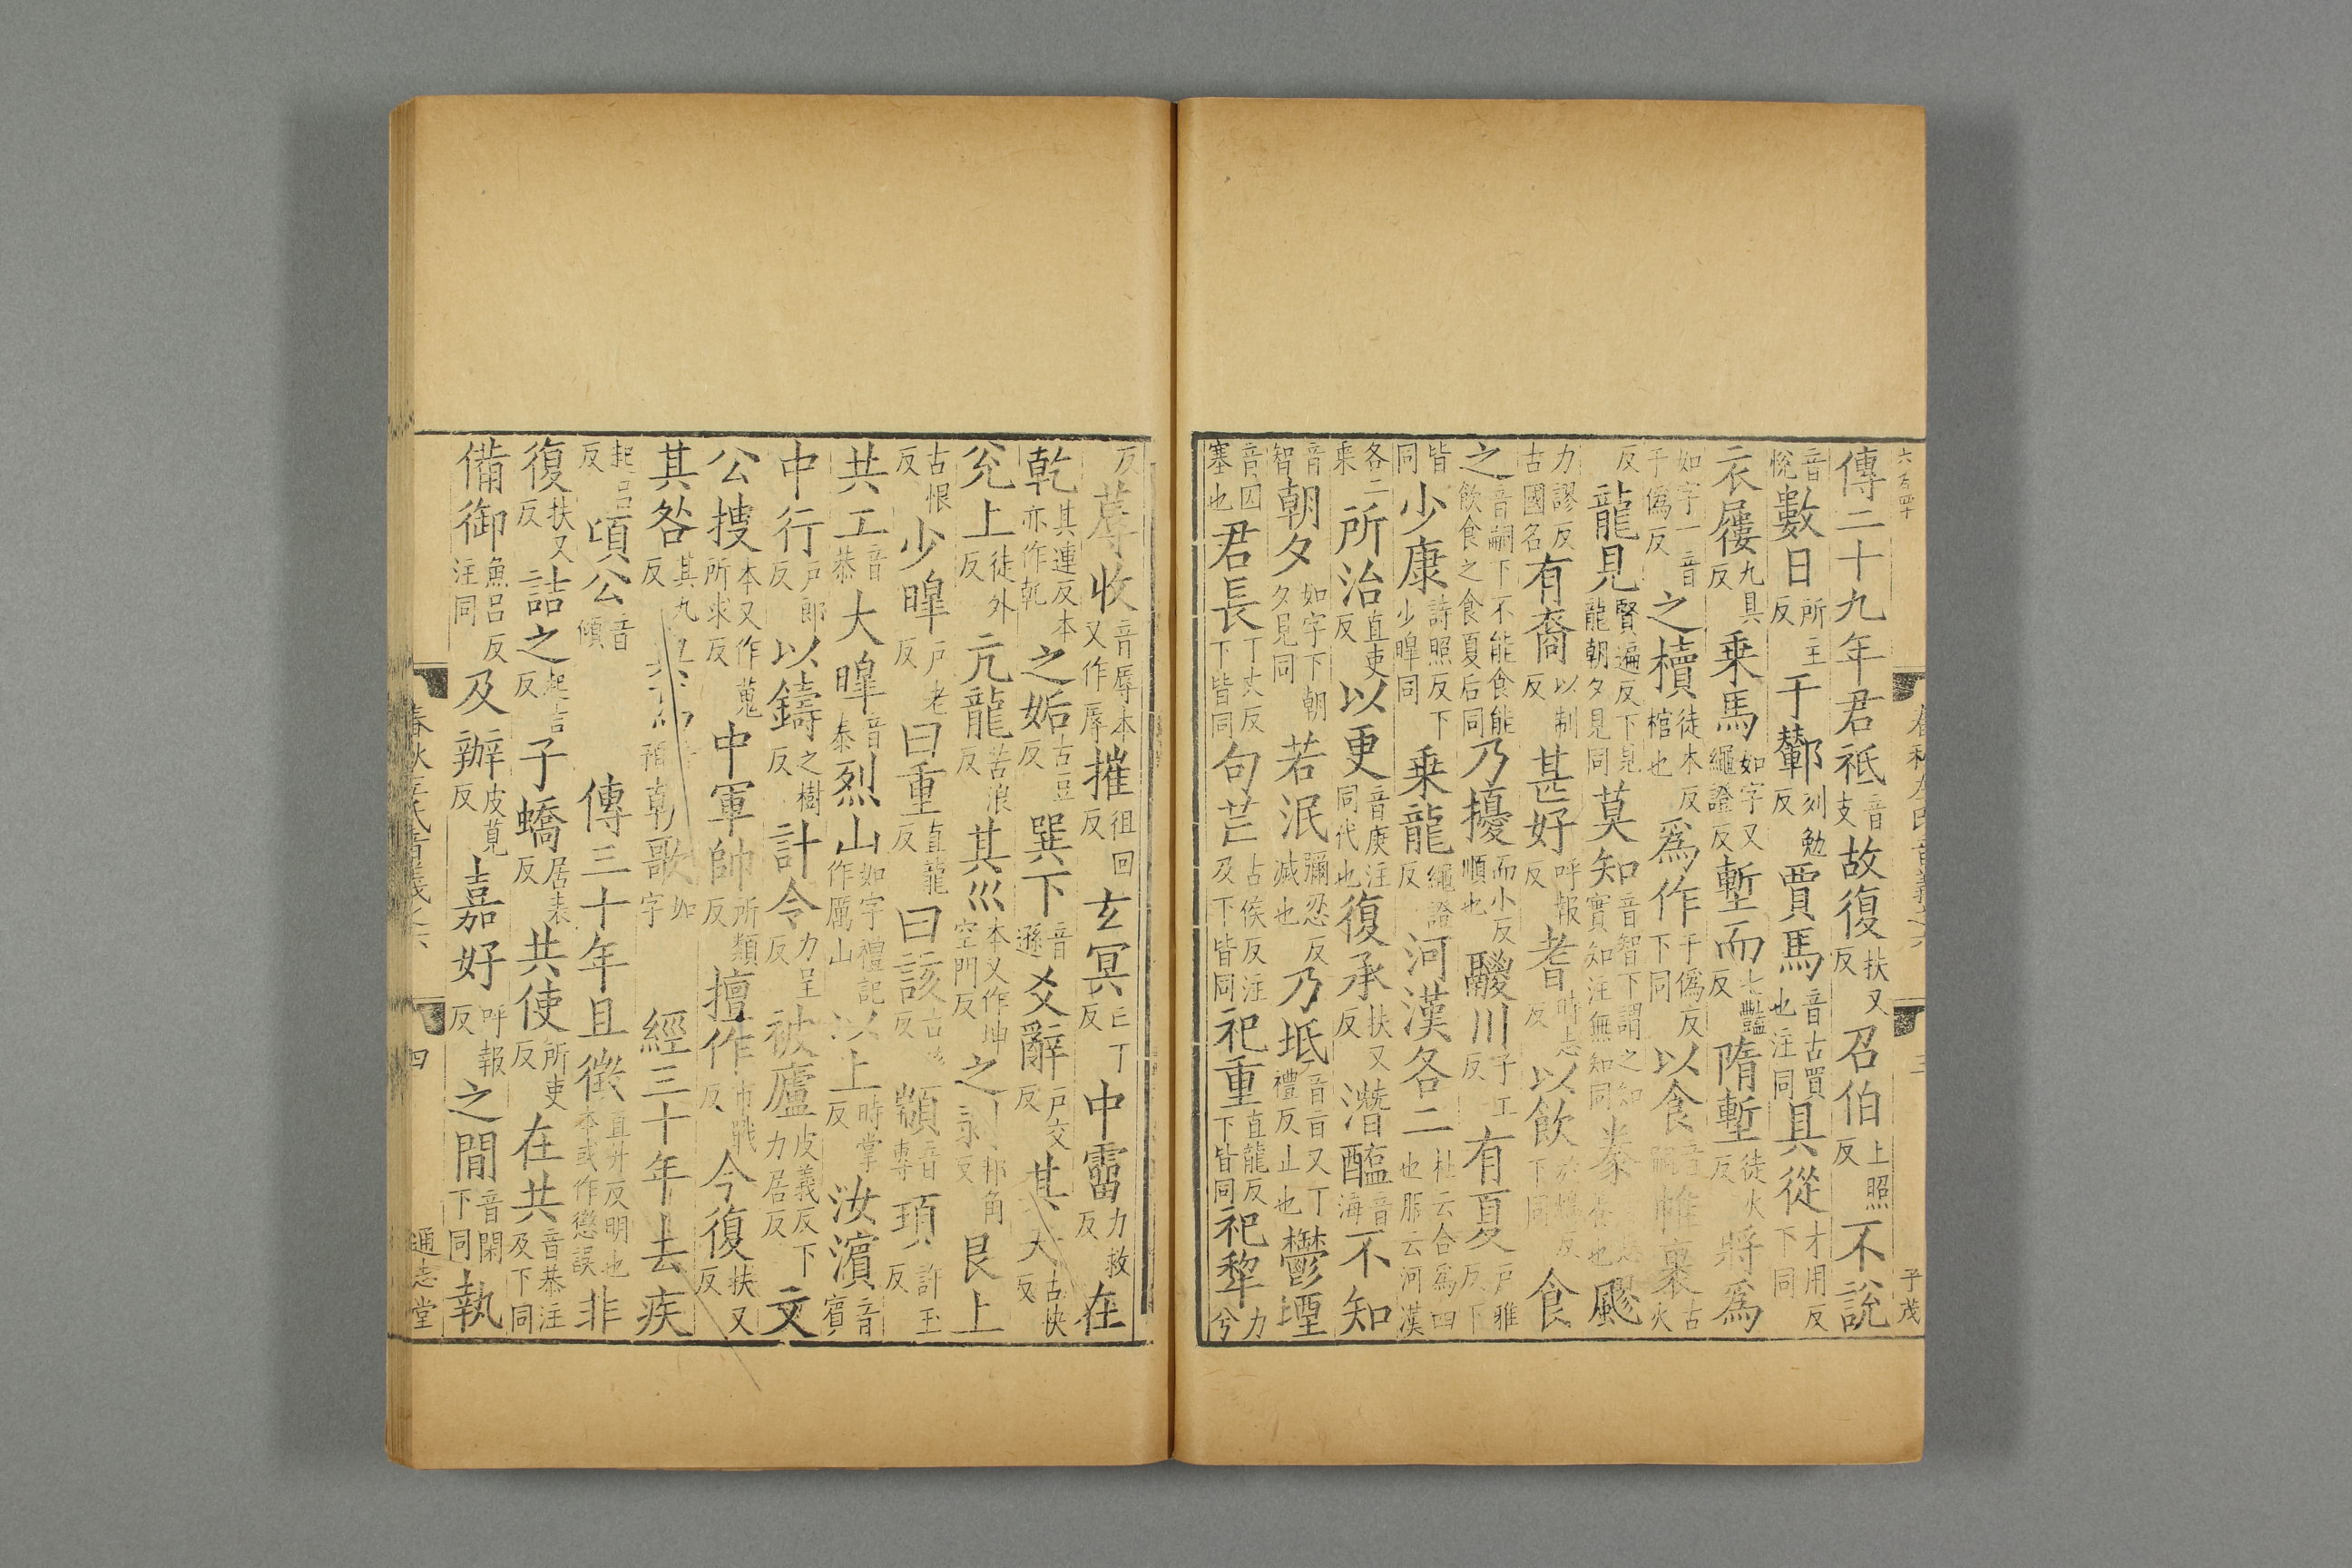 傳二十九年君祗音支故復扶又反召伯上照反不說
音悅數日所主反于鄻列勉反賈馬音古買也注同具從才用反下同
衣屨九具反乘馬如字又繩證反塹而七豔反隋塹徒火反將爲
如字一音于僞反之櫝徒木反棺也爲作于僞反下同以食帷裹古火
反龍見賢遍反下見龍朝夕見同莫知音智下謂之知實知注無知同豢養也飂
力謬反古國名有裔以制反甚好呼報反耆時志反以飲下同食
之音嗣下不能食能飲食之食夏后同乃擾而小反順也鬷川子工反有夏戶雅反下
皆同少康詩照反下少皞同乘龍繩證反河漢各二杜云合爲四也服云河漢
各二乘所治直吏反以更音庚注同代也復承扶又反潛醢音海不知
音智朝夕如字下朝夕見同若泯彌忍反滅也乃坻音旨又丁禮反止也鬱堙
音因塞也君長丁丈反下皆同句芒古侯反注及下皆同祀重直龍反下皆同祀犂力兮
反蓐收音辱本又作辱摧徂回反玄冥亡丁反中霤力救反在
乾其連反本亦作乹之姤古豆反巽下音遜爻辭戶交反其夬古快反
兊上徒外反亢龍苦浪反其巛本又作坤空門反之剝邦角反艮上
古恨反少皥戶老反曰重直龍反曰該古反顓音專頊許玉反
共工音恭大皥音泰烈山如字禮記作厲山以上時掌反汝濱音賓
中行戶郎反以鑄之樹反計令力呈反被廬皮義反下力居反文
公搜本又作蒐所求反中軍帥所類反擅作市戰反今復扶又反
其咎其九反預乾歌如字經三十年去疾
起呂反頃公音傾傳三十年且徵直升反明也本或作懲誤非
復扶又反詰之起吉反子蟜居表反共使所吏反在共音恭注及下同
備御魚呂反注同及辦皮莧反嘉好呼報反之閒音閑下同執
春秋左氏音義之六
四
通志堂